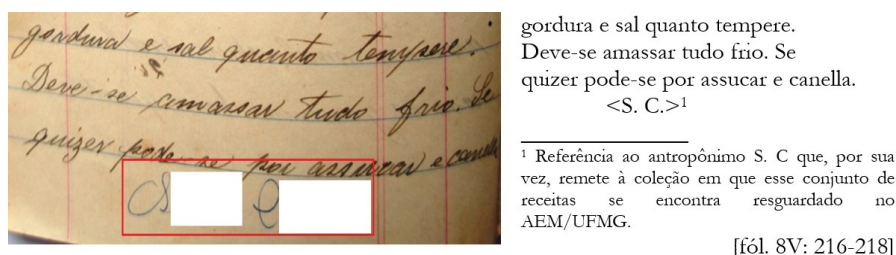 gordura e sal quanto tempere.
Deve-se amassar tudo frio. Se
quizer pode-se por assucar e canella
S C
gordura e sal quanto tempere.
Deve-se amassar tudo frio. Se
quizer pode-se por assucar e canella.
<S. C.>¹
¹ Referência ao antropônimo S. C que, por sua
vez, remete à coleção em que esse conjunto de
receitas se encontra resguardado no
AEM/UFMG.
[fól. 8V: 216-218]